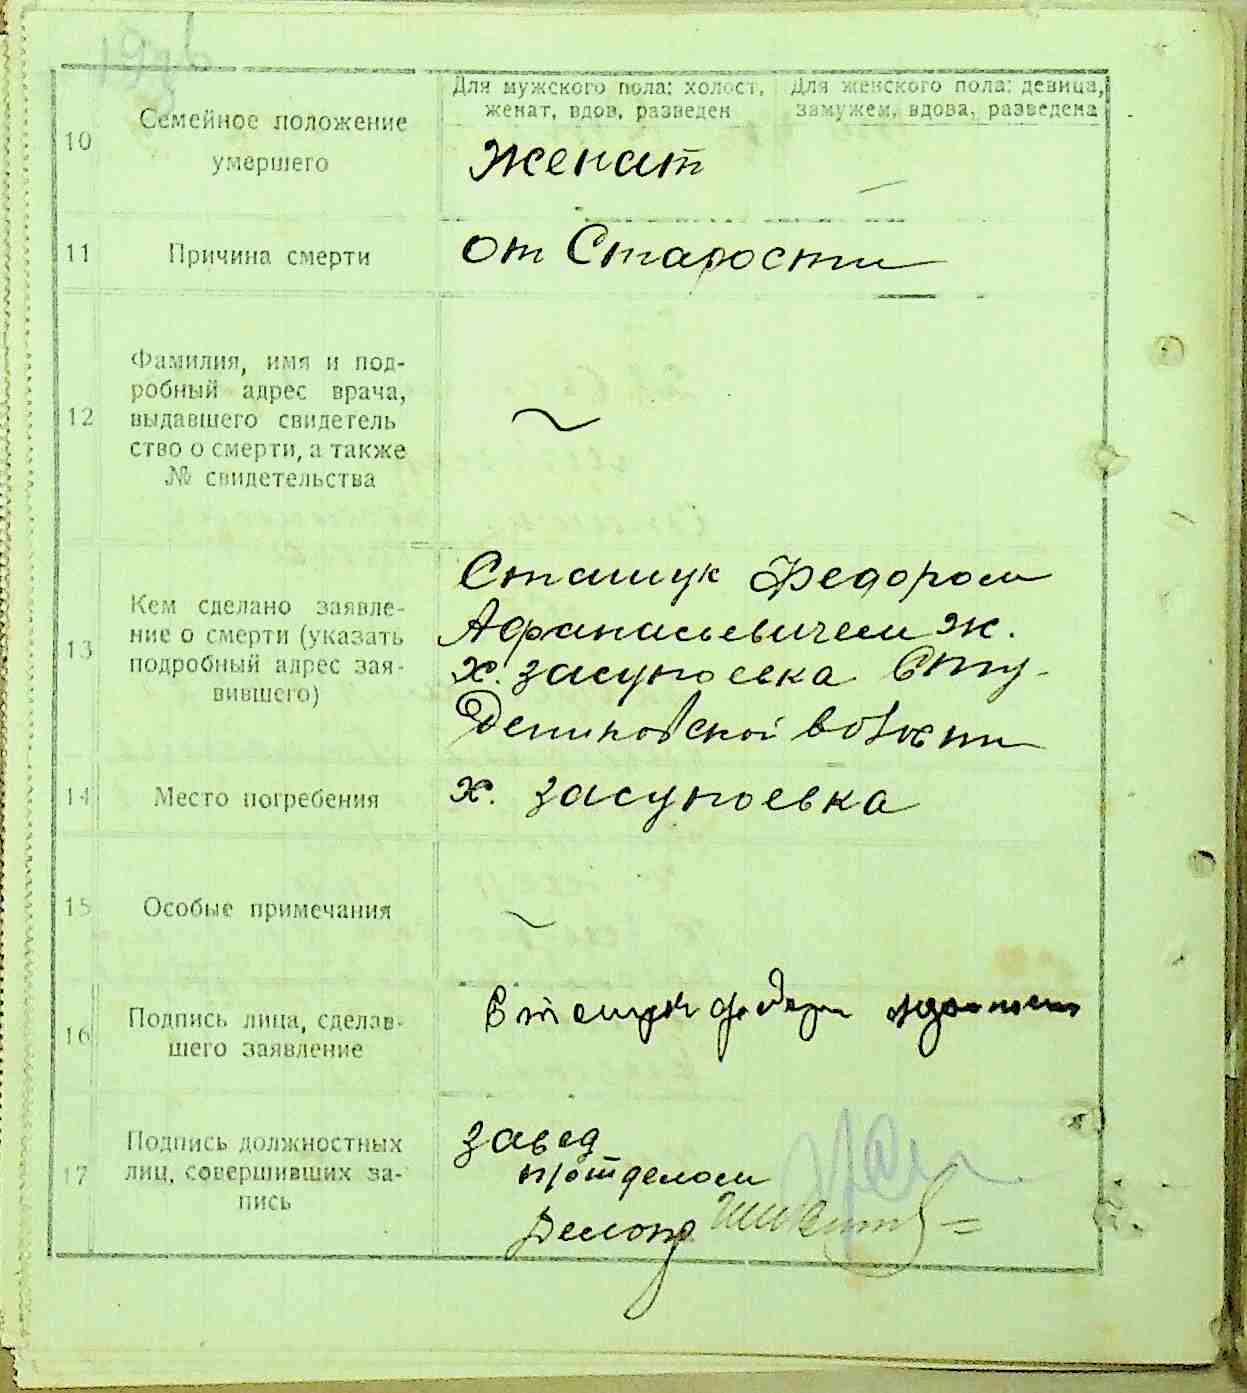 Для мужского пола: холост, женат, вдов, разведен
Для женского пола: девица, замужем, вдова, разведена
10
Семейное положение
умершего
Женат
11
Причина смерти
от Старости
12
Фамилия, имя и под-
робный адрес врача,
выдавшего свидетель
ство о смерти, а также
№ свидетельства
~
13
Кем сделано заявле-
ние о смерти (указать
подробный адрес зая-
вившего)
Сташук Федором
Афанасьевичем ж.
х. засупоевка Сту-
Дениковской волости
14
Место погребения
х. засупоевка
15
Особые примечания
~
16
Подпись лица, сделав-
шего заявление
Сташук
17
Подпись должностных
лиц, совершивших за-
пись
завед
п/отделом
Делопр